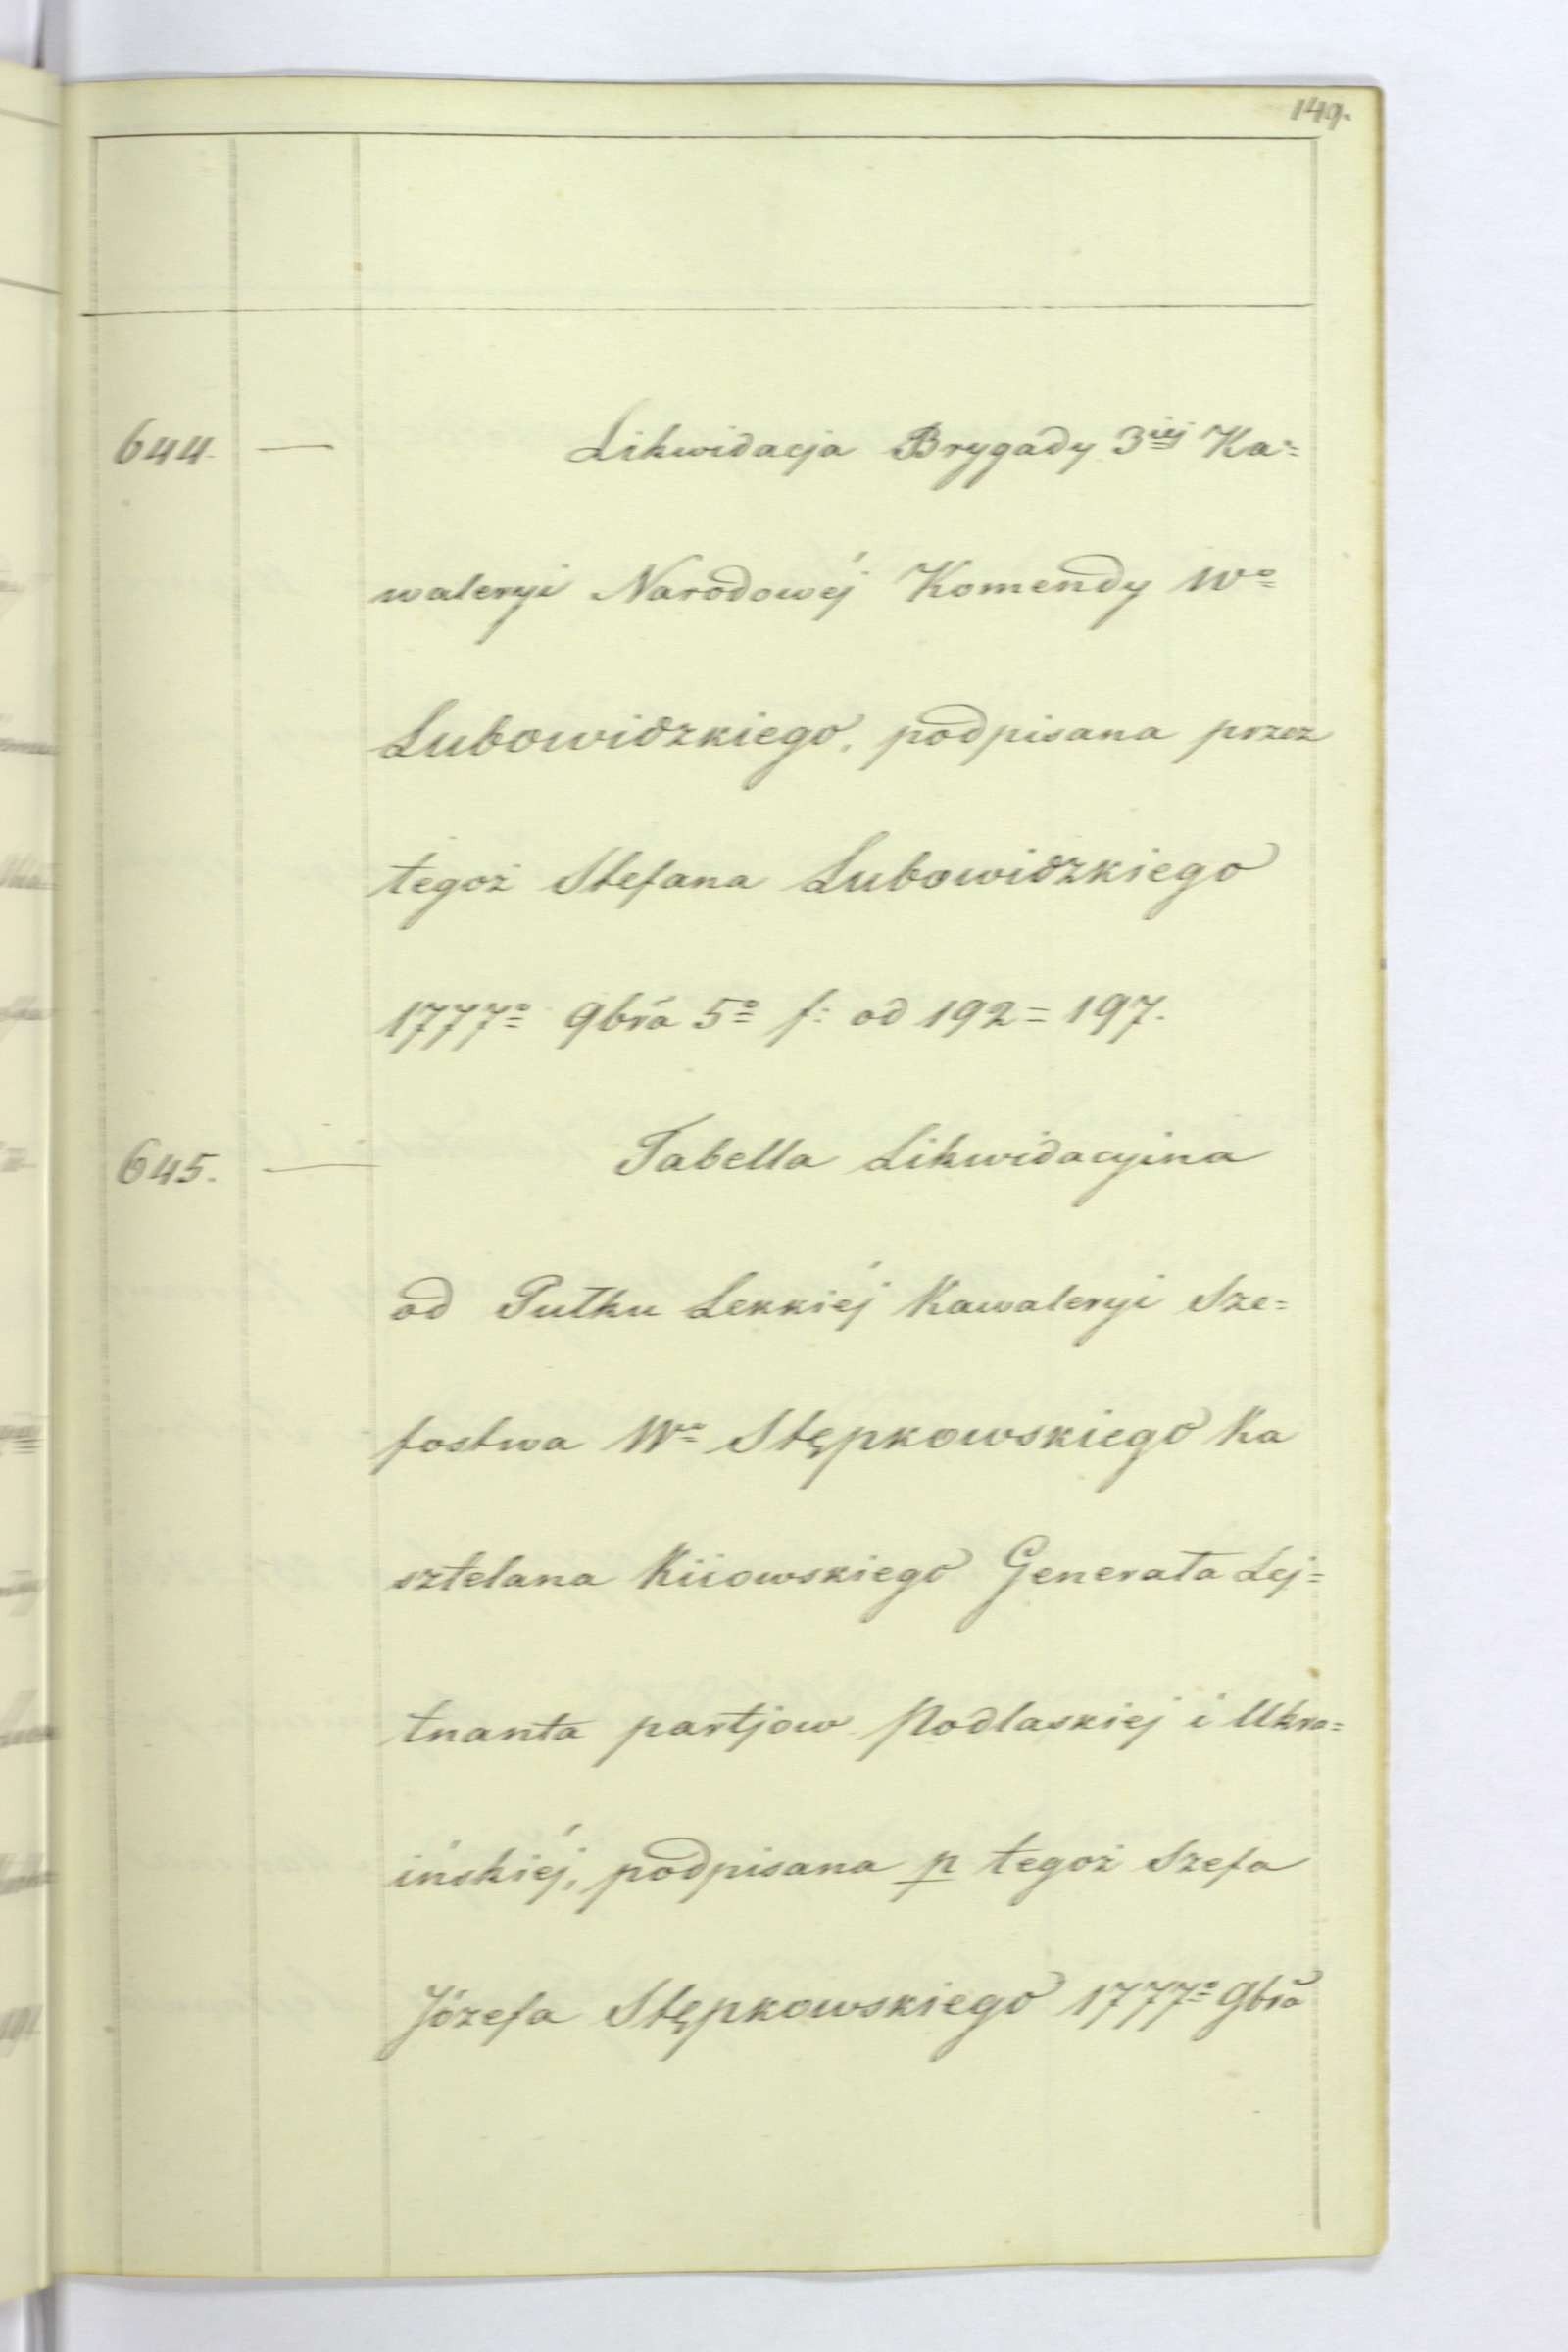 149.
644. — Likwidacja Brygady 3iej Ka=
waleryi Narodowéj Komendy Wo
Lubowidzkiego, podpisana przez
tegoż Stefana Lubowidzkiego
1777o 9bra 5o f: od 192=197.
645. — Tabella Likwidacyina
od Pułku Lekkiéj Kawaleryi Sze=
fostwa Wo Stępkowskiego Ka
sztelana Kiiowskiego Generała Lej=
tnanta partjow Podlaskiej i Ukra=
ińskiéj, podpisana p tegoż Szefa
Józefa Stępkowskiego 1777o 9bra